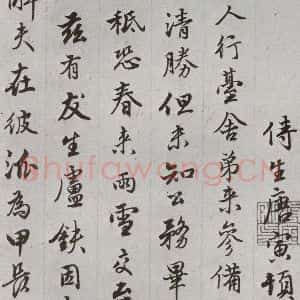 侍生唐寅頓
人行臺舍弟来參備
清勝但未知公務畢
秪恐春来雨雪交
茲有友生盧鉄因
解夫在彼派為甲長
Shufawang.CN